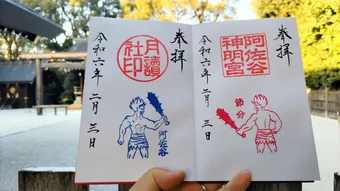 奉拝
月讀社印
令和六年二月三日
阿佐谷
奉拝
阿佐谷神明宮
令和六年二月三日
節分